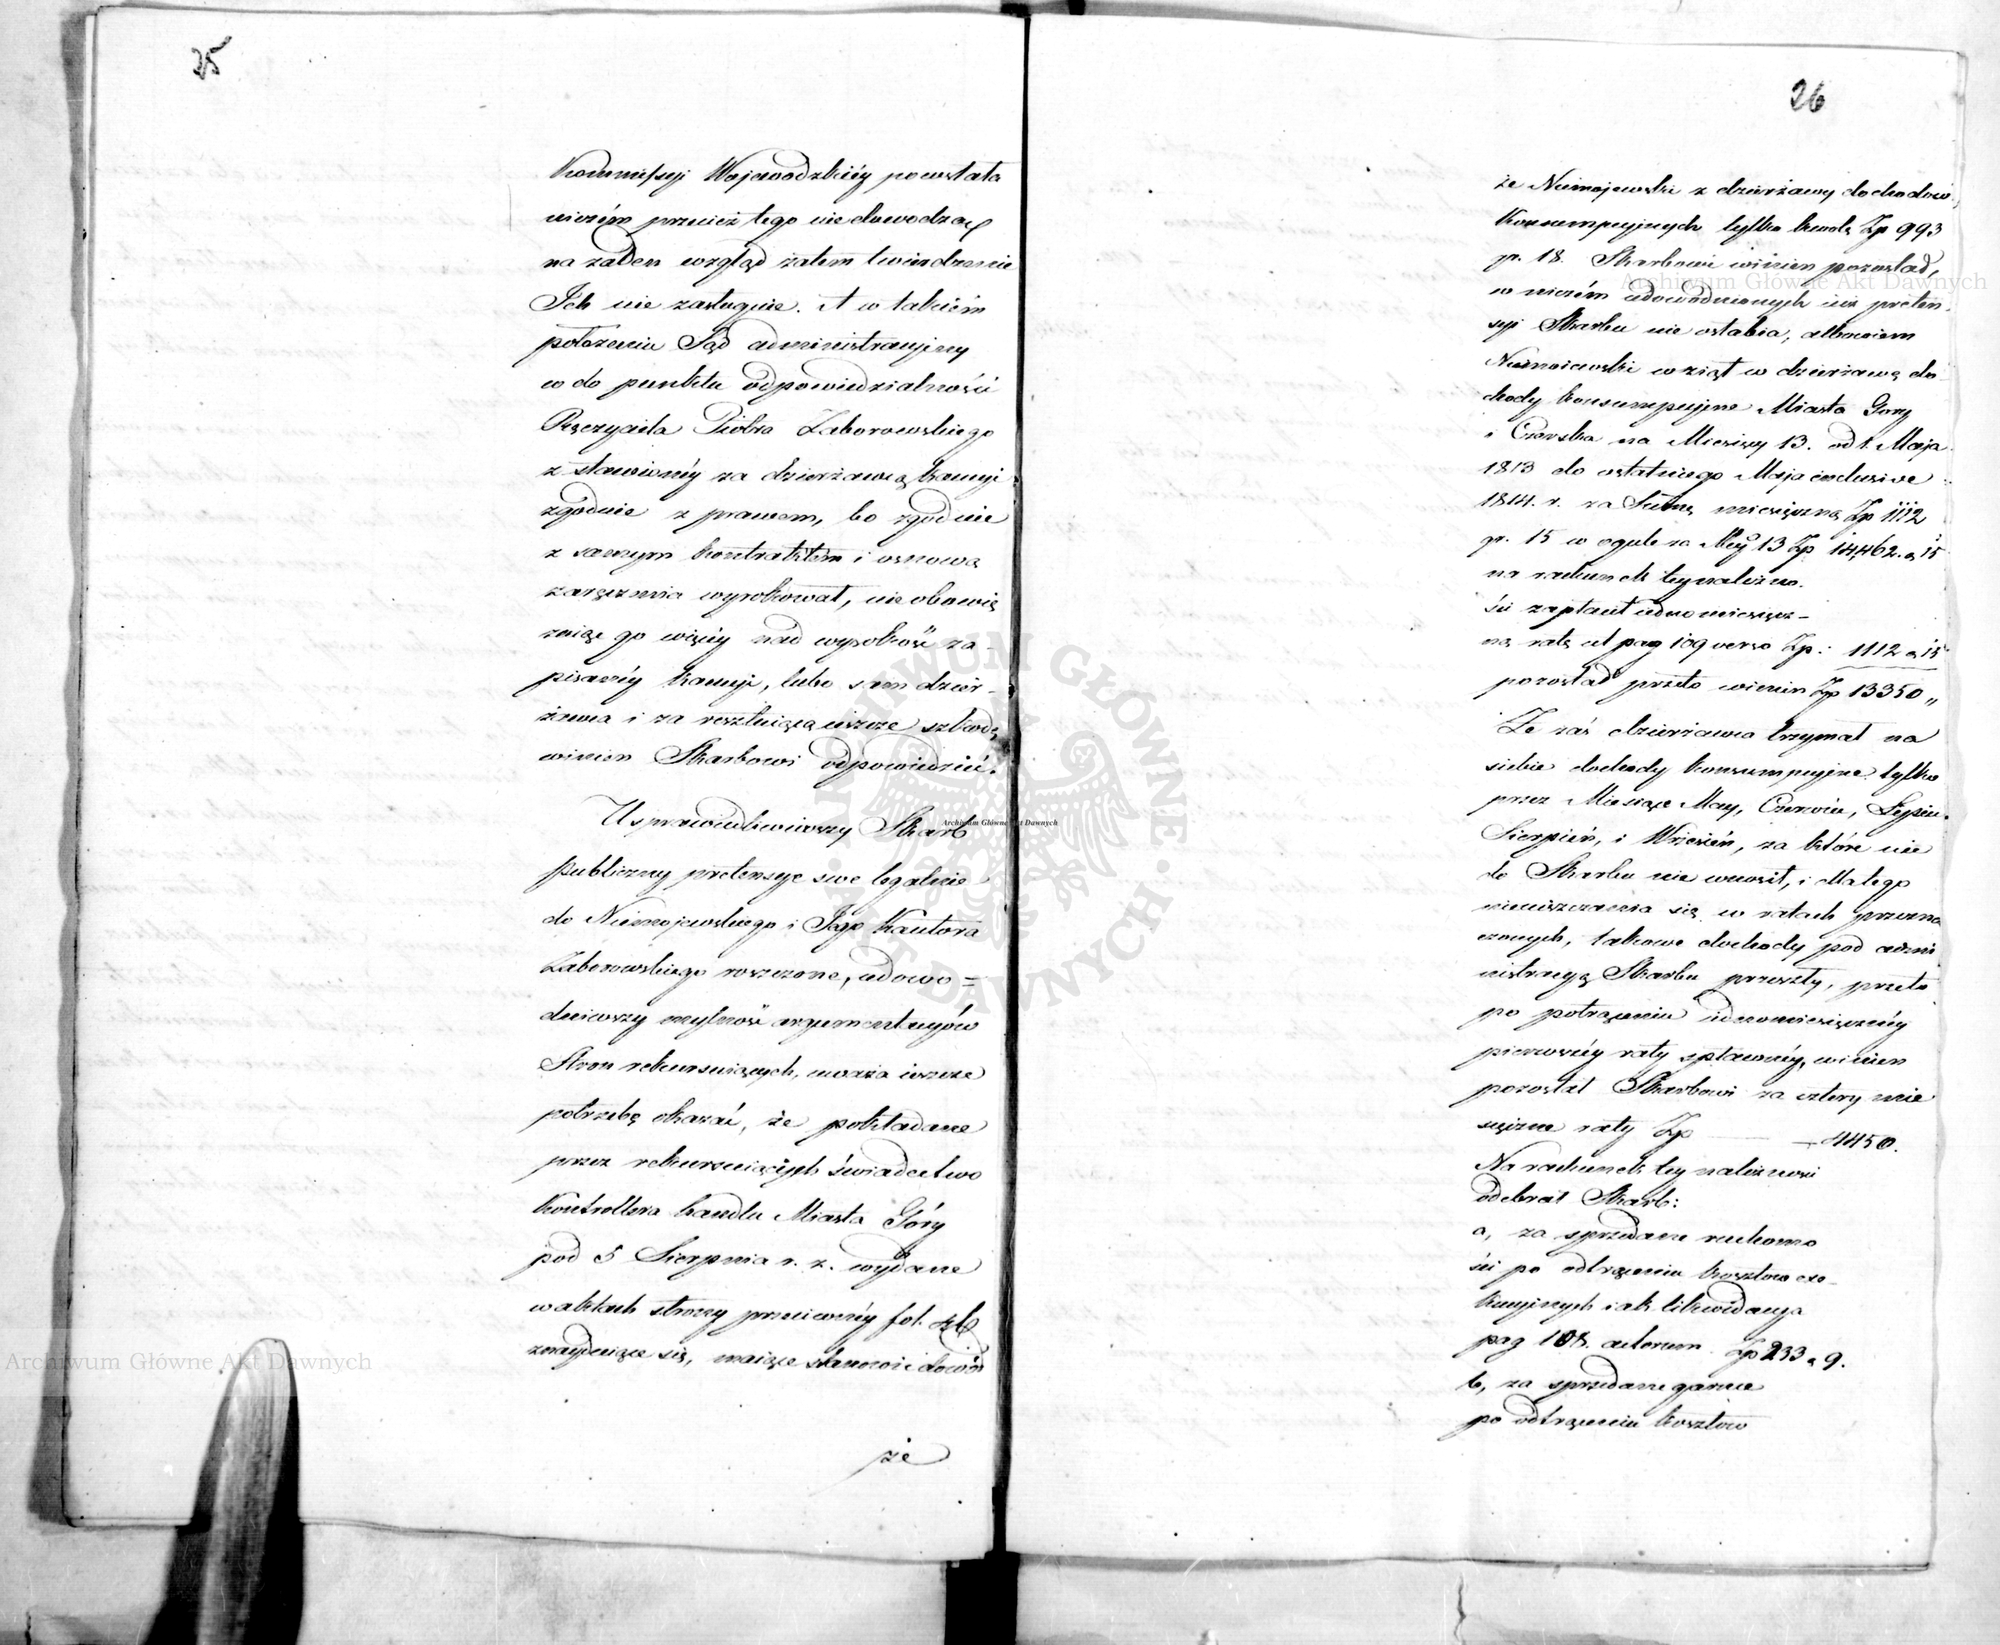 25
Kommissyi Wojewodzkiéy powstała
niczém przecież tego nie dowodzą
na żaden wzgląd zatem twierdzenie
Ich nie zasługuie. A w takiém
położeniu Sąd administracyiny
co do punktu odpowiedzialności
Ręczyciela Piotra Zaborowskiego
z stawionéy za dzierżawcą kaucyi
zgodnie z prawem, bo zgodnie
z samym kontraktem i osnową
zaręczenia wyrokował, nie obowią
zuiąc go więcéy nad wysokość za-
pisanéy kaucyi, lubo sam dzier-
żawca i za resztuiącą ieszcze szkodę
winien Skarbowi odpowiedzieć.
Usprawiedliwiwszy Skarb
publiczny pretensye swe legalnie
do Niemojewskiego i Jego Kautora
Zaborowskiego roszczone, udowo=
dniwszy mylność argumentacyów
Stron rekursuiących, uważa ieszcze
potrzebę okazać, że pokładane
przez rekursuiących świadectwo
Kontrollera handlu Miasta Góry
pod 5 Sierpnia r. z. wydane
w aktach strony przeciwnéy fol.
znayduiące się, maiące stanowić dowód
że
26
że Niemojewski z dzierżawy dochodów
Konsumpcyjnych tylko kwotę Zp 993
gr. 18. Skarbowi winien pozostał,
w niczém udowodnionych iuż preten-
syi Skarbu nie osłabia, albowiem
Niemoiewski wziął w dzierżawę do-
chody konsumpcyjne Miasta Gory
i Czerska na Miesięcy 13. od 1. Maja
1813 do ostatniego Maja inclusive
1814. r. za Sumę miesięczną Zp 1112
gr. 15 w ogule za Mcy 13 Zp 14,462. „ 15
na rachunek tey należno-
ści zapłacił iedno miesięcz-
ną ratę ut pag 109 verso Zp: 1112 „ 15
pozostał przeto winien Zp 13350 „
Że zaś dzierżawca trzymał na
siebie dochody konsumpcyjne tylko
przez Miesiące May, Czerwiec, Lipiec
Sierpień, i Wrzesień, za które nic
do Skarbu nie wnosił, i dla tego
nieuiszczania się w ratach przezna
czonych, takowe dochody pod admi
nistracyą Skarbu przeszły, przeto
po potrąceniu iednomiesięcznéy
pierwszéy raty spłaconéy, winien
pozostał Skarbowi za cztery mie
sięczne raty Zp — 4450.
Na rachunek tey należności
odebrał Skarb:
a, za sprzedane ruchomo
ści po odtrąceniu kosztow exe-
kucyjnych iak likwidacya
pag 108. actorum. Zp 233 „ 9.
b, za sprzedane garnce
po odtrąceniu kosztow
Archiwum Główne Akt Dawnych
Archiwum Główne Akt Dawnych
Archiwum Główne Akt Dawnych
ARCHIWUM GŁÓWNE AKT DAWNYCH